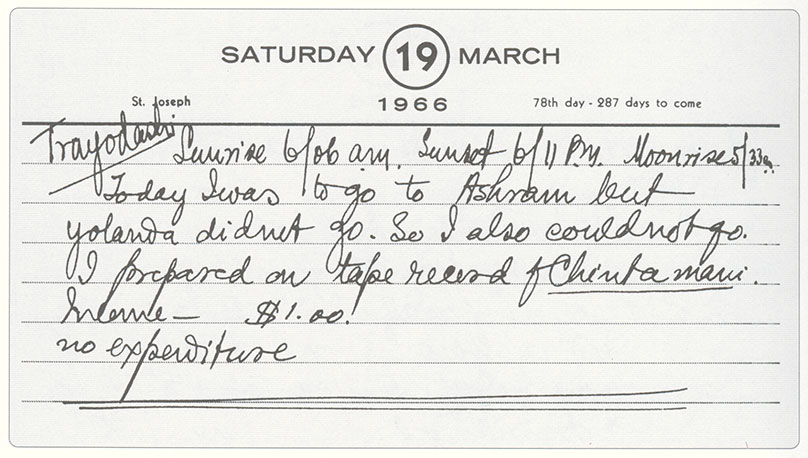 SATURDAY 19 MARCH
St. Joseph 1966 78th day - 287 days to come
Trayodashi Sunrise 6/06 a.m. Sunset 6/11 P.M. Moonrise 5/33 am
Today I was to go to Ashram but
yolanda did not go. So I also could not go.
I prepared on tape record of Chintamani.
Income — $1.00.
no expenditure